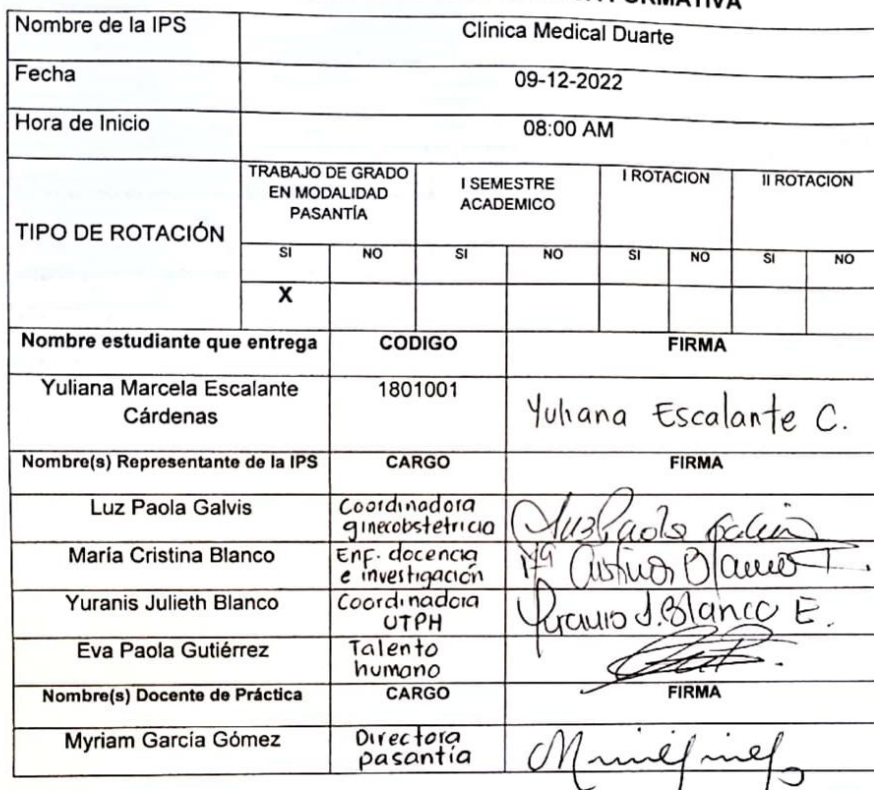 Nombre de la IPS
Clínica Medical Duarte
Fecha
09-12-2022
Hora de Inicio
08:00 AM
TIPO DE ROTACIÓN
TRABAJO DE GRADO
EN MODALIDAD
PASANTÍA
I SEMESTRE
ACADEMICO
I ROTACION
II ROTACION
SI NO SI NO SI NO SI NO
X
Nombre estudiante que entrega CODIGO FIRMA
Yuliana Marcela Escalante
Cárdenas
1801001
Yuliana Escalante C.
Nombre(s) Representante de la IPS CARGO FIRMA
Luz Paola Galvis
Coordinadora
ginecobstetricia
Luz Paola Galvis
María Cristina Blanco
Enf. docencia
e investigación
Mª Cristina Blanco T.
Yuranis Julieth Blanco
Coordinadora
UTPH
Yuranis J. Blanco E.
Eva Paola Gutiérrez
Talento
humano
Nombre(s) Docente de Práctica CARGO FIRMA
Myriam García Gómez
Directora
pasantía